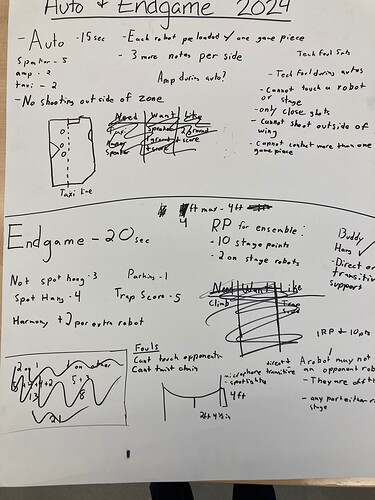 Auto & Endgame 2024
- Auto - 15sec
Speaker - 5
amp - 2
taxi - 2
- Each robot pre loaded w/ one game piece
- 3 more notes per side
Amp during auto?
- No shooting outside of zone
Taxi line
Need | Want | Like
Speaker
2 ground
+ score
Speaker
+ score
Tech foul 5pts
- Tech foul during autos
- Cannot touch a robot
or stage
- only close shots
- Cannot shoot outside of
wing
- Cannot contact more than one
game piece
4 ft max - 4ft
Endgame - 20sec
Not spot hang - 3
Parking - 1
Spot Hang - 4
Trap Score - 5
Harmony + 2 per extra robot
RP for ensemble:
- 10 stage points
- 2 on stage robots
Buddy
Hang
- Direct or
transitive
support
Need | Want | Like
Climb
Trap
1RP & 10pts
2 on 1
1 on other
5+3
8
13
21
Fouls
Cant touch opponent
Cant twist chain
- microphone
- spotlights
direct &
transitive
4ft
2ft 4 1/4in
A robot may not
an opponent rob
- They are off th
- any part either r
stage